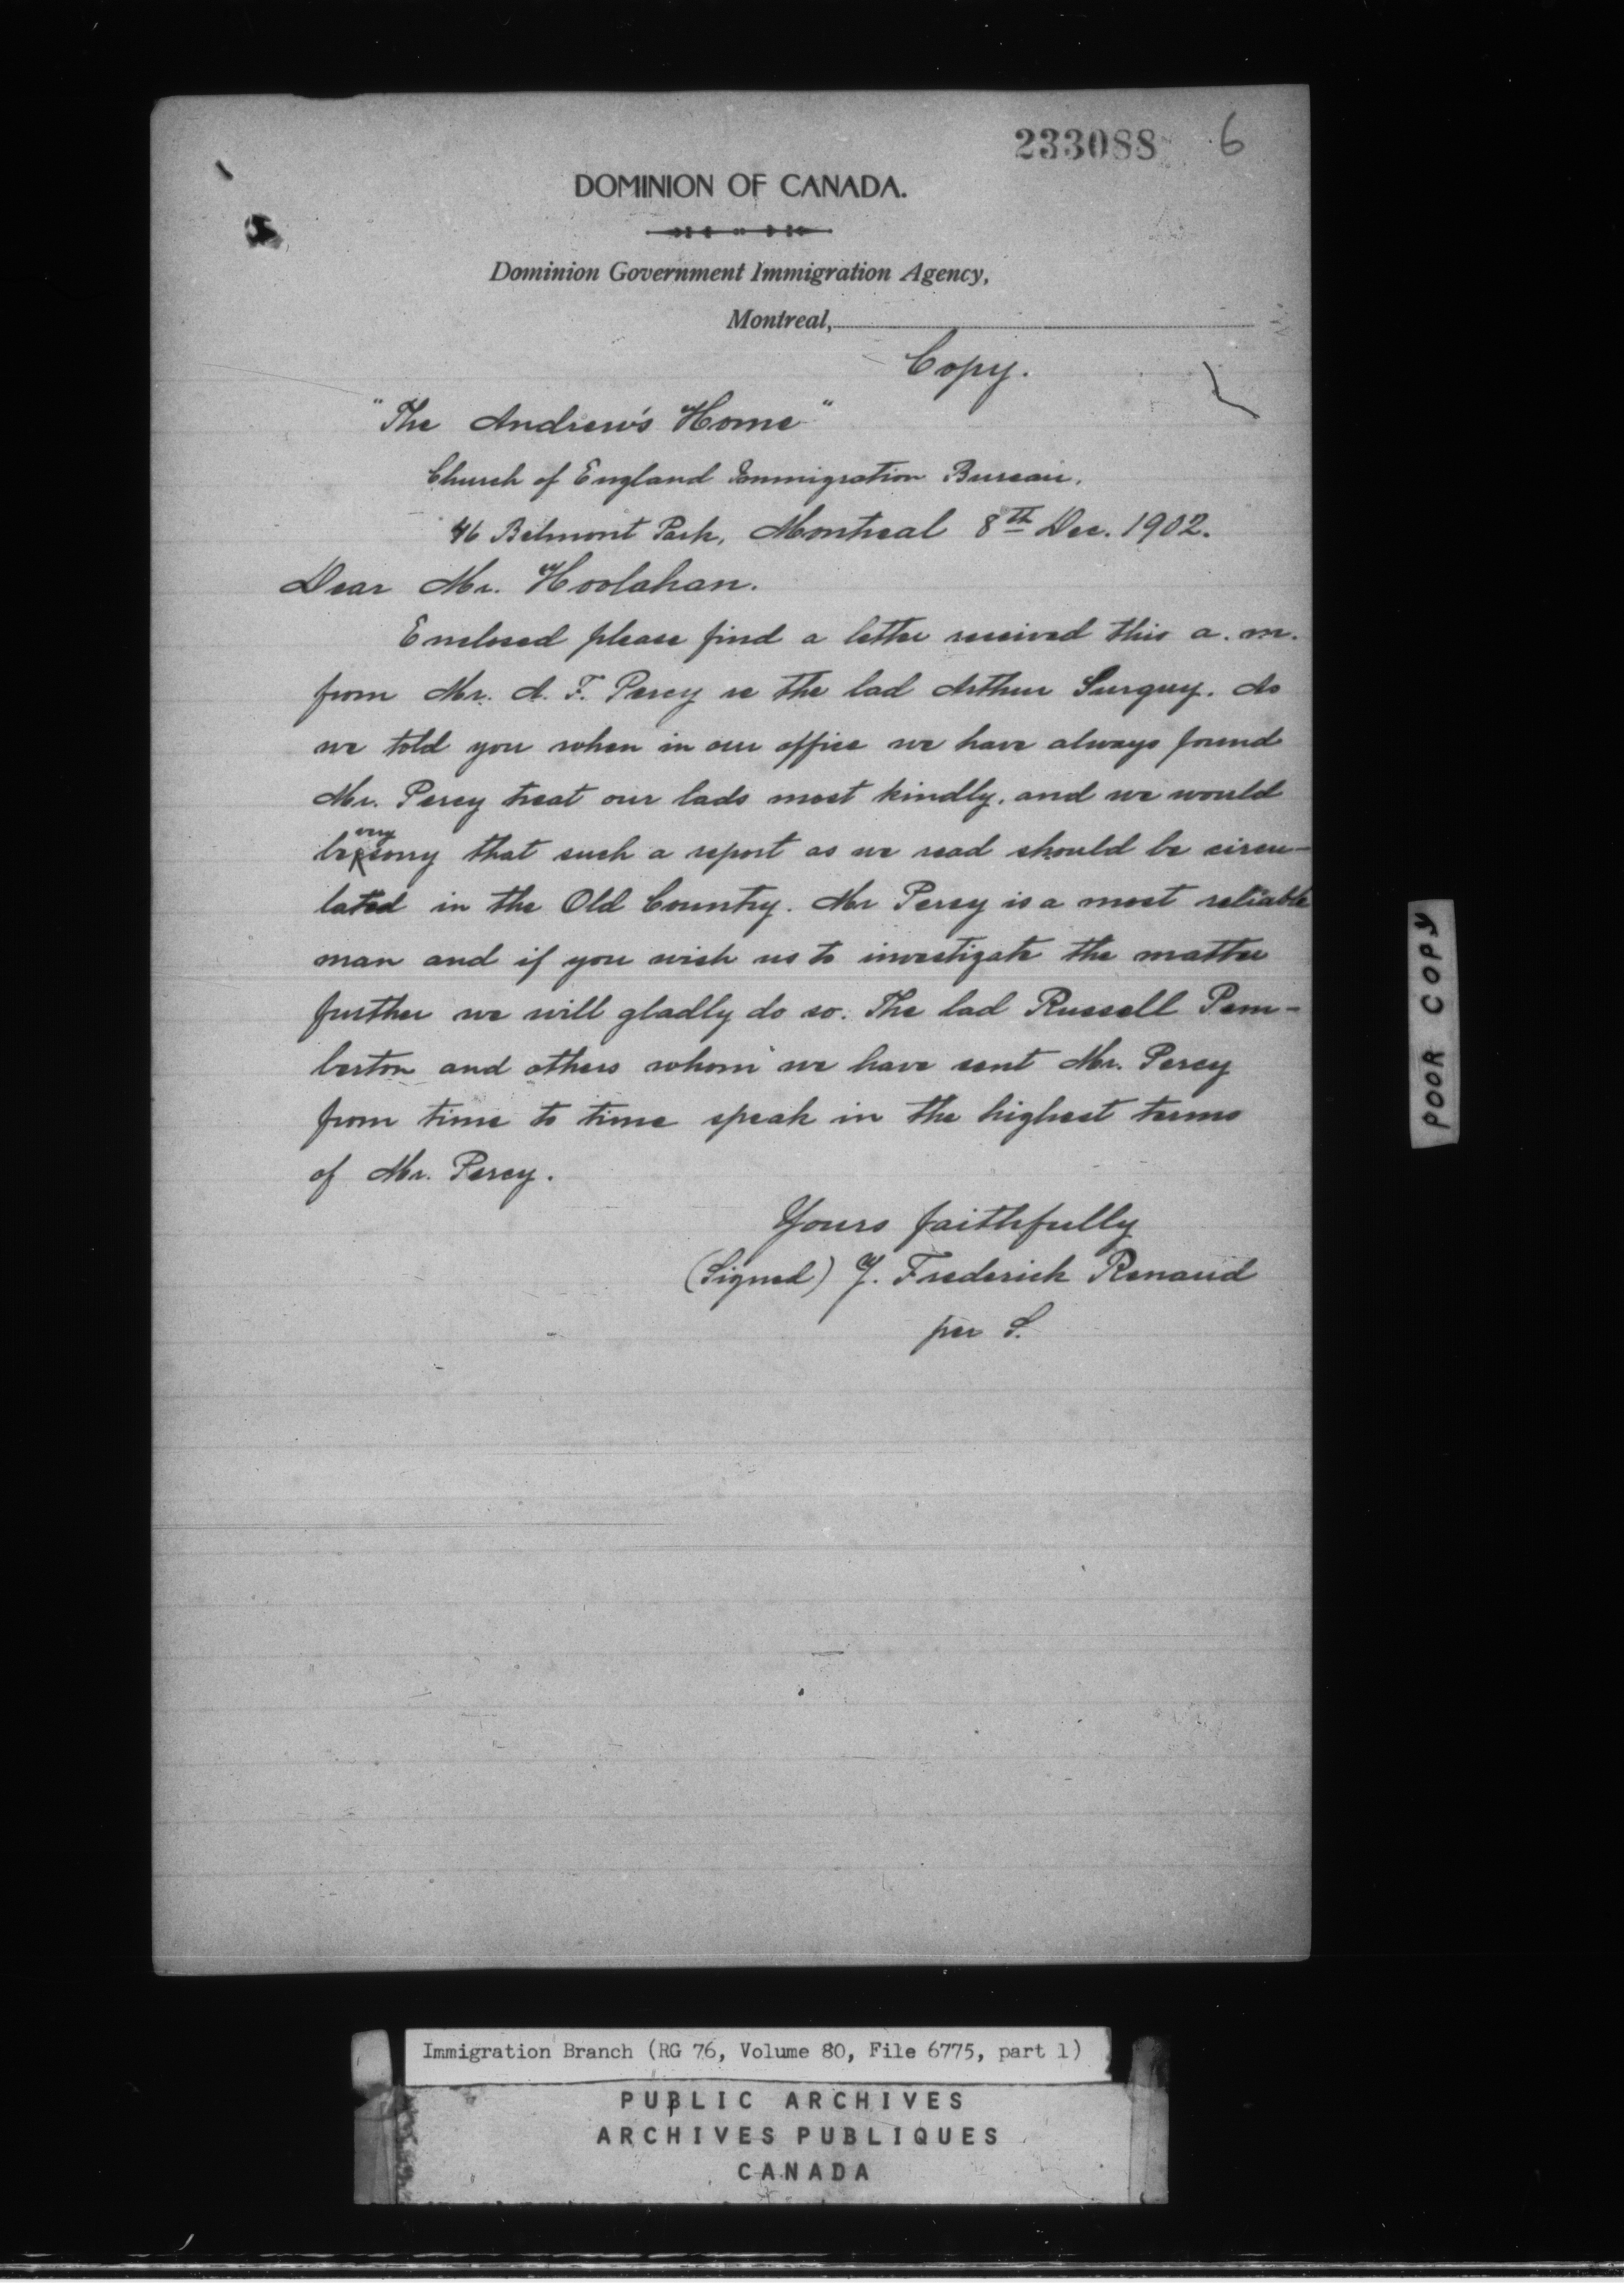 233088 6
DOMINION OF CANADA.
Dominion Government Immigration Agency,
Montreal,
Copy.
"The Andrew's Home"
Church of England Immigration Bureau.
46 Belmont Park, Montreal 8th Dec. 1902.
Dear Mr. Hoolahan.
Enclosed please find a letter received this a.m.
from Mr. A. F. Percy re the lad Arthur Surguy. As
we told you when in our office we have always found
Mr. Percy treat our lads most kindly. and we would
be very sorry that such a report as we read should be circu-
lated in the Old Country. Mr Percy is a most reliable
man and if you wish us to investigate the matter
further we will gladly do so. The lad Russell Pem-
berton and others whom we have sent Mr. Percy
from time to time speak in the highest terms
of Mr. Percy.
Yours faithfully
(Signed) J. Frederick Renaud
per S.
POOR COPY
Immigration Branch (RG 76, Volume 80, File 6775, part 1)
PUBLIC ARCHIVES
ARCHIVES PUBLIQUES
CANADA